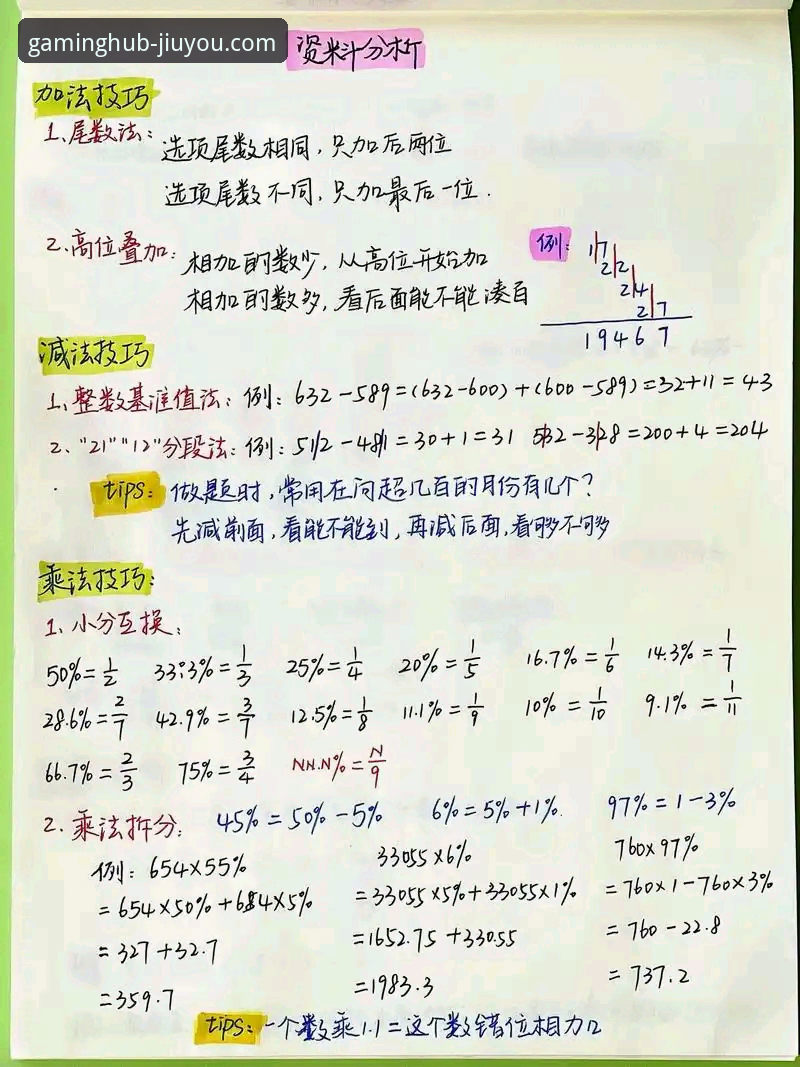 gaminghub-jiuyou.com
资料分析
加法技巧
1、尾数法：选项尾数相同，只加后两位
选项尾数不同，只加最后一位.
2.高位叠加：相加的数少，从高位开始加
相加的数多，看后面能不能凑百
例：
17
22
24
27
19467
减法技巧
1、整数基准值法：例：632-589=(632-600)+(600-589)=32+11=43
2、"21""12"分段法：例：51/2-48/1=30+1=31 5/32-3/28=200+4=204
tips：做题时，常用在问超几百的月份有几个？
先减前面，看能不能到，再减后面，看够不够
乘法技巧：
1、小分互换：
50%=1/2 33.3%=1/3 25%=1/4 20%=1/5 16.7%=1/6 14.3%=1/7
28.6%=2/7 42.9%=3/7 12.5%=1/8 11.1%=1/9 10%=1/10 9.1%=1/11
66.7%=2/3 75%=3/4 NN.N%=N/9
2.乘法拆分：45%=50%-5% 6%=5%+1% 97%=1-3%
例：654×55%
=654×50%+654×5%
=327+32.7
=359.7
33055×6%
=33055×5%+33055×1%
=1652.75+330.55
=1983.3
760×97%
=760×1-760×3%
=760-22.8
=737.2
tips：一个数乘1.1=这个数错位相加